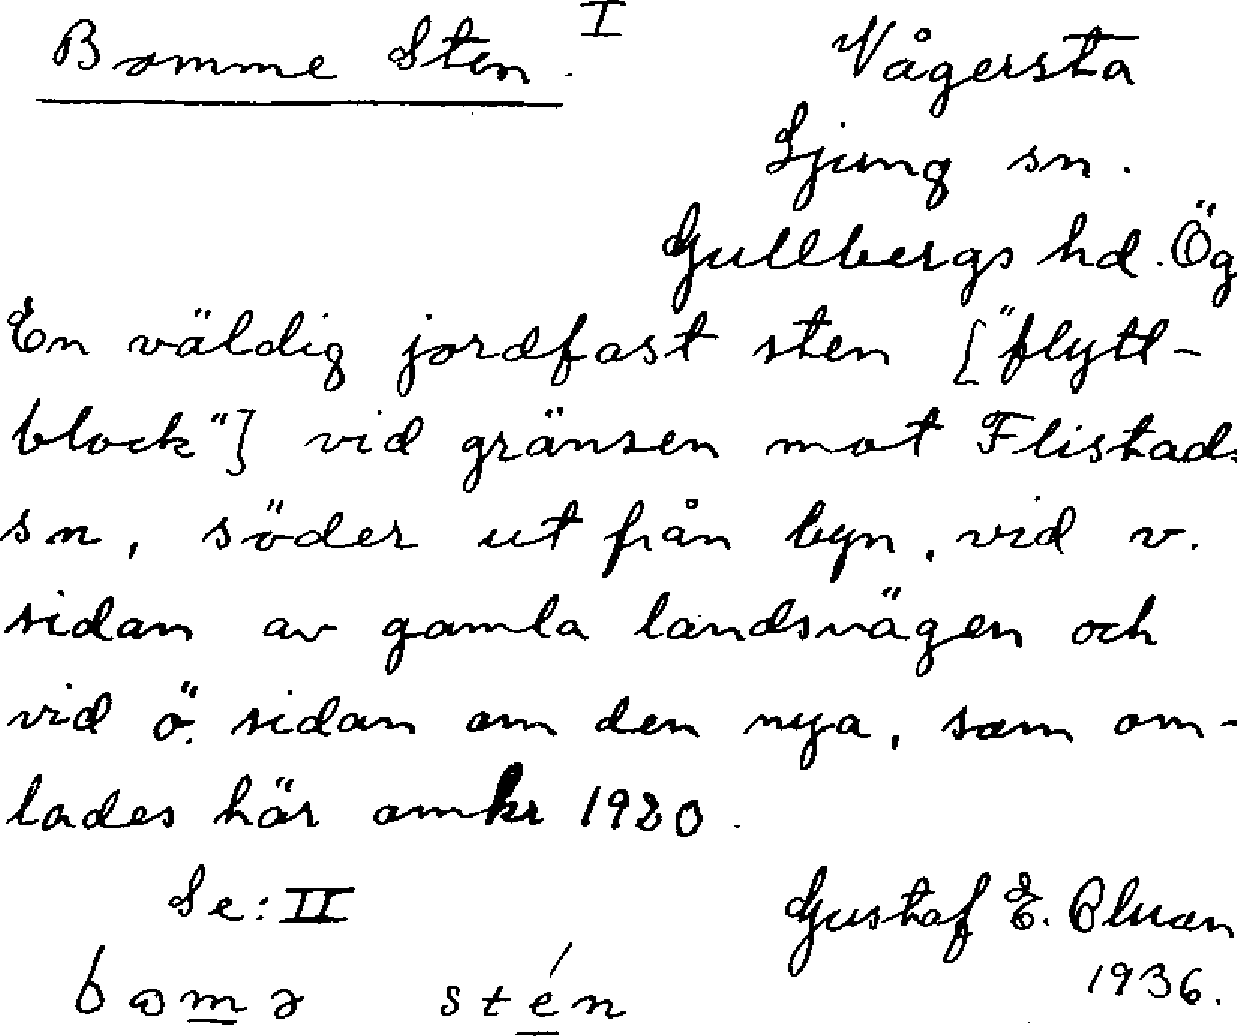 Bomme Sten. I
Vågersta
Ljung sn.
Gullbergs hd. Ög
En väldig jordfast sten ["flytt-
block"] vid gränsen mot Flistads
sn, söder ut från byn, vid v.
sidan av gamla landsvägen och
vid ö. sidan om den nya, som om-
lades här omkr 1920.
Se: II
Gustaf E.
1936.
stén